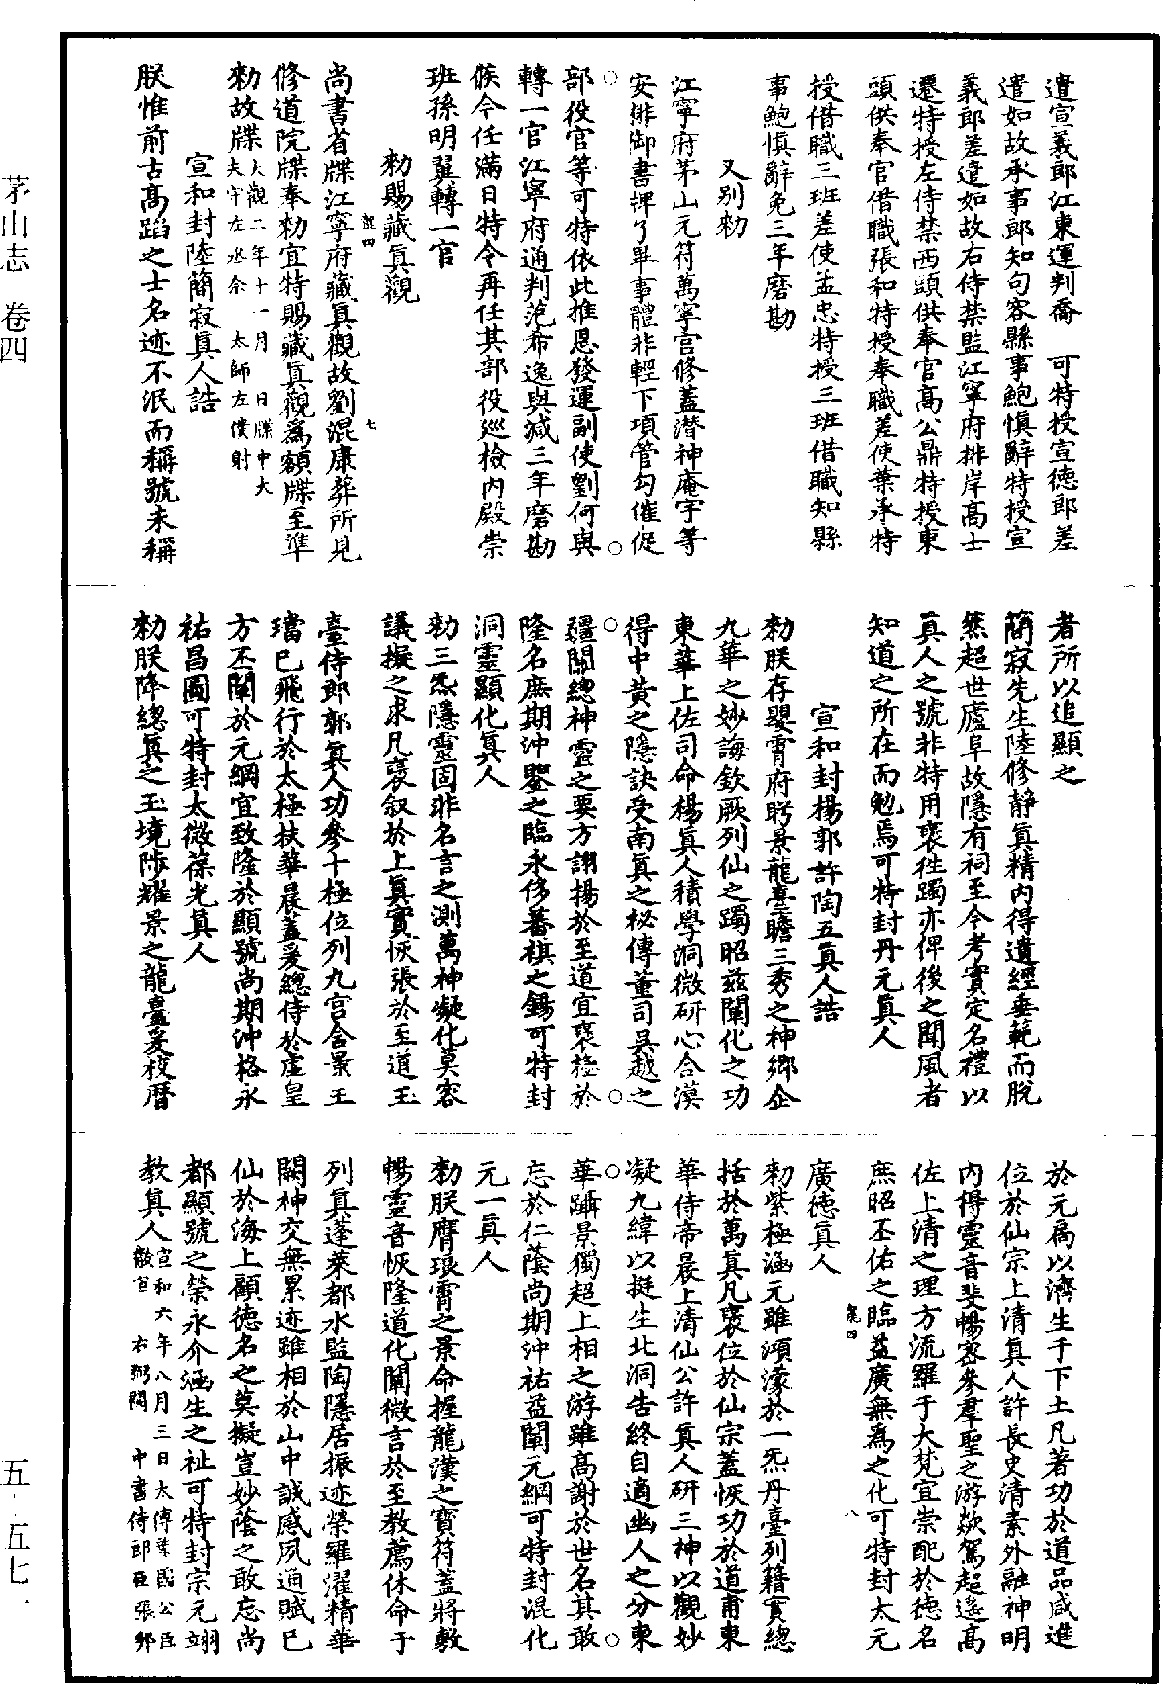 茅山志 卷四
遣宣義郎江東運判喬 可特授宣德郎差
遣如故承事郎知句容縣事鮑慎辭特授宣
義郎差遣如故右侍禁監江寧府排岸高士
遷特授左侍禁西頭供奉官高公鼎特授東
頭供奉官借職張和特授奉職差使葉承特
授借職三班差使孟忠特授三班借職知縣
事鮑慎辭免三年磨勘
又別勑
江寧府茅山元符萬寧宮修蓋潛神庵宇等
安排御書碑了畢事體非輕下項管勾催促
部役官等可特依此推恩發運副使劉何與
轉一官江寧府通判范希逸與減三年磨勘
候今任滿日特令再任其部役廵檢內殿崇
班孫明冀轉一官
勑賜藏真觀
龍四 七
尚書省牒江寧府藏真觀故劉混康葬所見
修道院牒奉勑宜特賜藏真觀爲額牒至準
勑故牒大觀二年十一月 日牒中大
夫守左丞余 太師左僕射
宣和封陸簡寂真人誥
朕惟前古高蹈之士名迹不泯而稱號未稱
者所以追顯之
簡寂先生陸修靜真精內得遺經垂範而脫
然超世廬阜故隱有祠至今考實定名禮以
真人之號非特用褒徃躅亦俾後之聞風者
知道之所在而勉焉可特封丹元真人
宣和封楊郭許陶五真人誥
勑朕存嬰霄府眄景龍臺瞻三秀之神鄉企
九華之妙誨欽厥列仙之躅昭茲闡化之功
東華上佐司命楊真人積學洞微研心合漠
得中黄之隱訣受南真之秘傳董司吳越之
疆關總神靈之要方翊揚於至道宜褒極於
隆名庶期沖鑒之臨永侈蕃祺之錫可特封
洞靈顯化真人
勑三炁隱靈固非名言之測萬神凝化莫容
議擬之求凡褒叙於上真實恢張於至道玉
臺侍郎郭真人功參十極位列九宮含景玉
璫已飛行於太極扶華晨蓋爰總侍於虛皇
方丕闡於元綱宜致隆於顯號尚期沖格永
祐昌圖可特封太微葆光真人
勑朕降總真之玉境陟耀景之龍臺爰校曆
於元扃以濟生于下土凡著功於道品咸進
位於仙宗上清真人許長史清素外融神明
內得靈音斐暢密參羣聖之游歘駕超遙高
佐上清之理方流羅于大梵宜崇配於德名
庶昭丕佑之臨益廣無為之化可特封太元
龍四 八
廣德真人
勑紫極涵元雖澒濛於一炁丹臺列籍實總
括於萬真凡褒位於仙宗蓋恢功於道甫東
華侍帝晨上清仙公許真人研三神以觀妙
凝九緯以挺生北洞告終自適幽人之分東
華躡景獨超上相之游雖高謝於世名其敢
忘於仁蔭尚期沖祐益闡元綱可特封混化
元一真人
勑朕膺琅霄之景命握龍漢之寶符蓋將敷
暢靈音恢隆道化闡微言於至教薦休命于
列真蓬萊都水監陶隱居振迹榮羅濯精華
闕神交無累迹雖相於山中誠感夙通賦已
仙於海上顧德名之莫擬豈妙蔭之敢忘尚
都顯號之榮永介涵生之祉可特封宗元翊
教真人宣和六年八月三日太傅葉國公臣
徽宣 右弼闕 中書侍郎臣張邦
五·五七